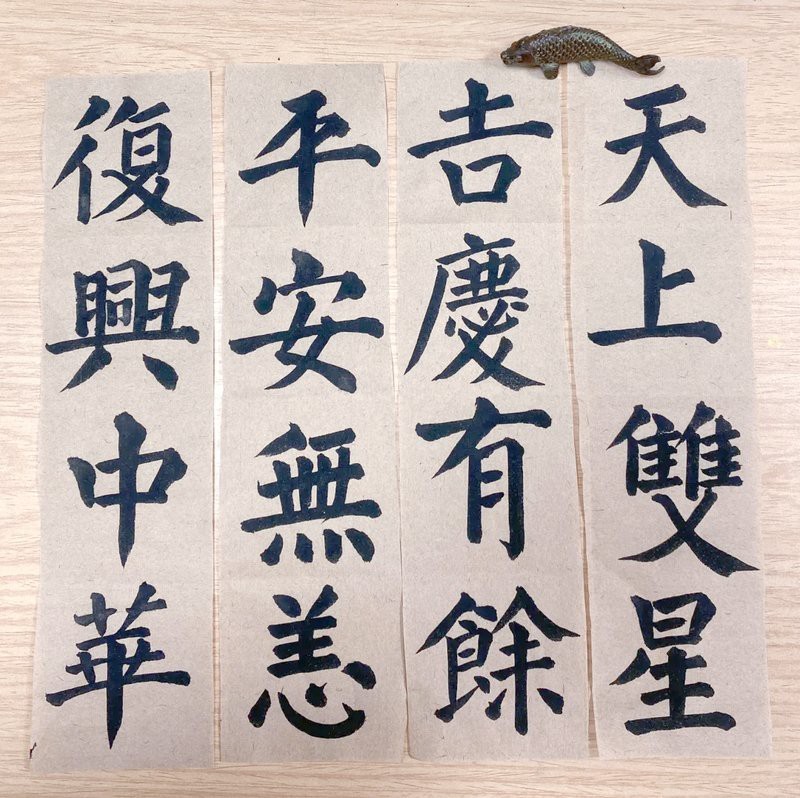 天上雙星
𠮷慶有餘
平安無恙
復興中華